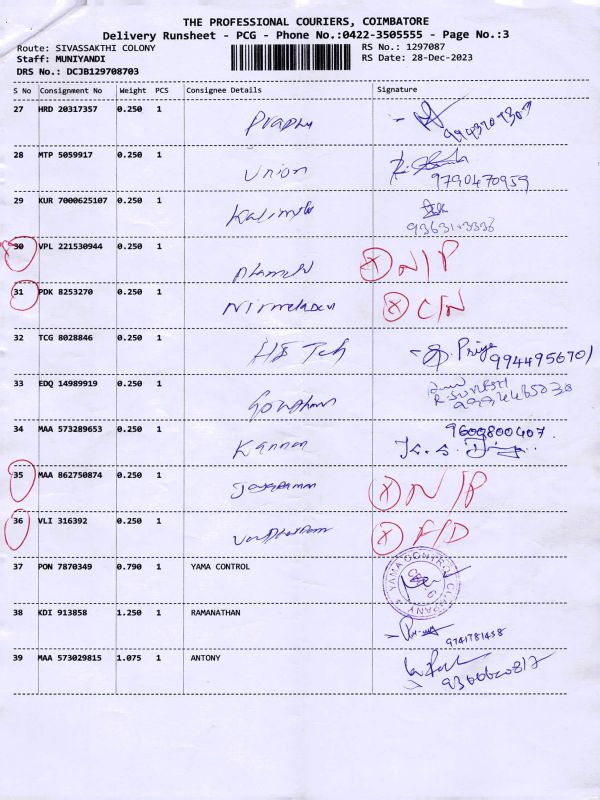 THE PROFESSIONAL COURIERS, COIMBATORE
Delivery Runsheet - PCG - Phone No.:0422-3505555 - Page No.:3
Route: SIVASSAKTHI COLONY RS No.: 1297087
Staff: MUNIYANDI RS Date: 28-Dec-2023
DRS No.: DCJB129708703
S No Consignment No Weight PCS Consignee Details Signature
27 HRD 20317357 0.250 1 Prabhu
28 MTP 5059917 0.250 1 Union
9790470959
29 KUR 7000625107 0.250 1
30 VPL 221530944 0.250 1 N/P
31 PDK 8253270 0.250 1 Nirmala Devi C/N
32 TCG 8028846 0.250 1 HB Tch Priya
9944956701
33 EDQ 14989919 0.250 1 Gowtham
34 MAA 573289653 0.250 1 Kannan 9600800407
35 MAA 862750874 0.250 1 Jayaraman N/P
36 VLI 316392 0.250 1 F/D
37 PON 7870349 0.790 1 YAMA CONTROL YAMA CONTROL COMPANY
38 KDI 913858 1.250 1 RAMANATHAN
9741781438
39 MAA 573029815 1.075 1 ANTONY